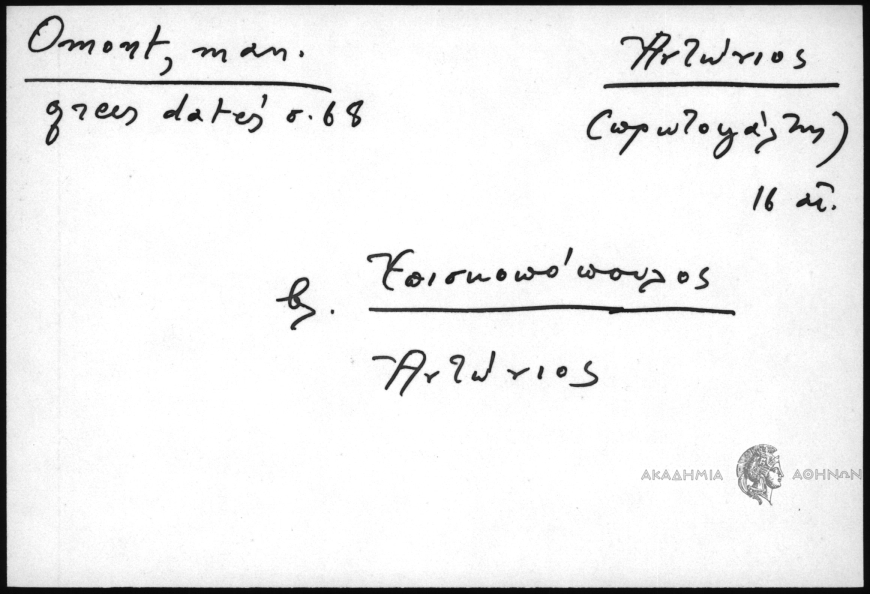 Omont, man.
grecs datés σ. 68
Ἀντώνιος
(πρωτοψάλτης)
16 αἰ.
βλ. Ἐπισκοπόπουλος
Ἀντώνιος
ΑΚΑΔΗΜΙΑ ΑΘΗΝΩΝ